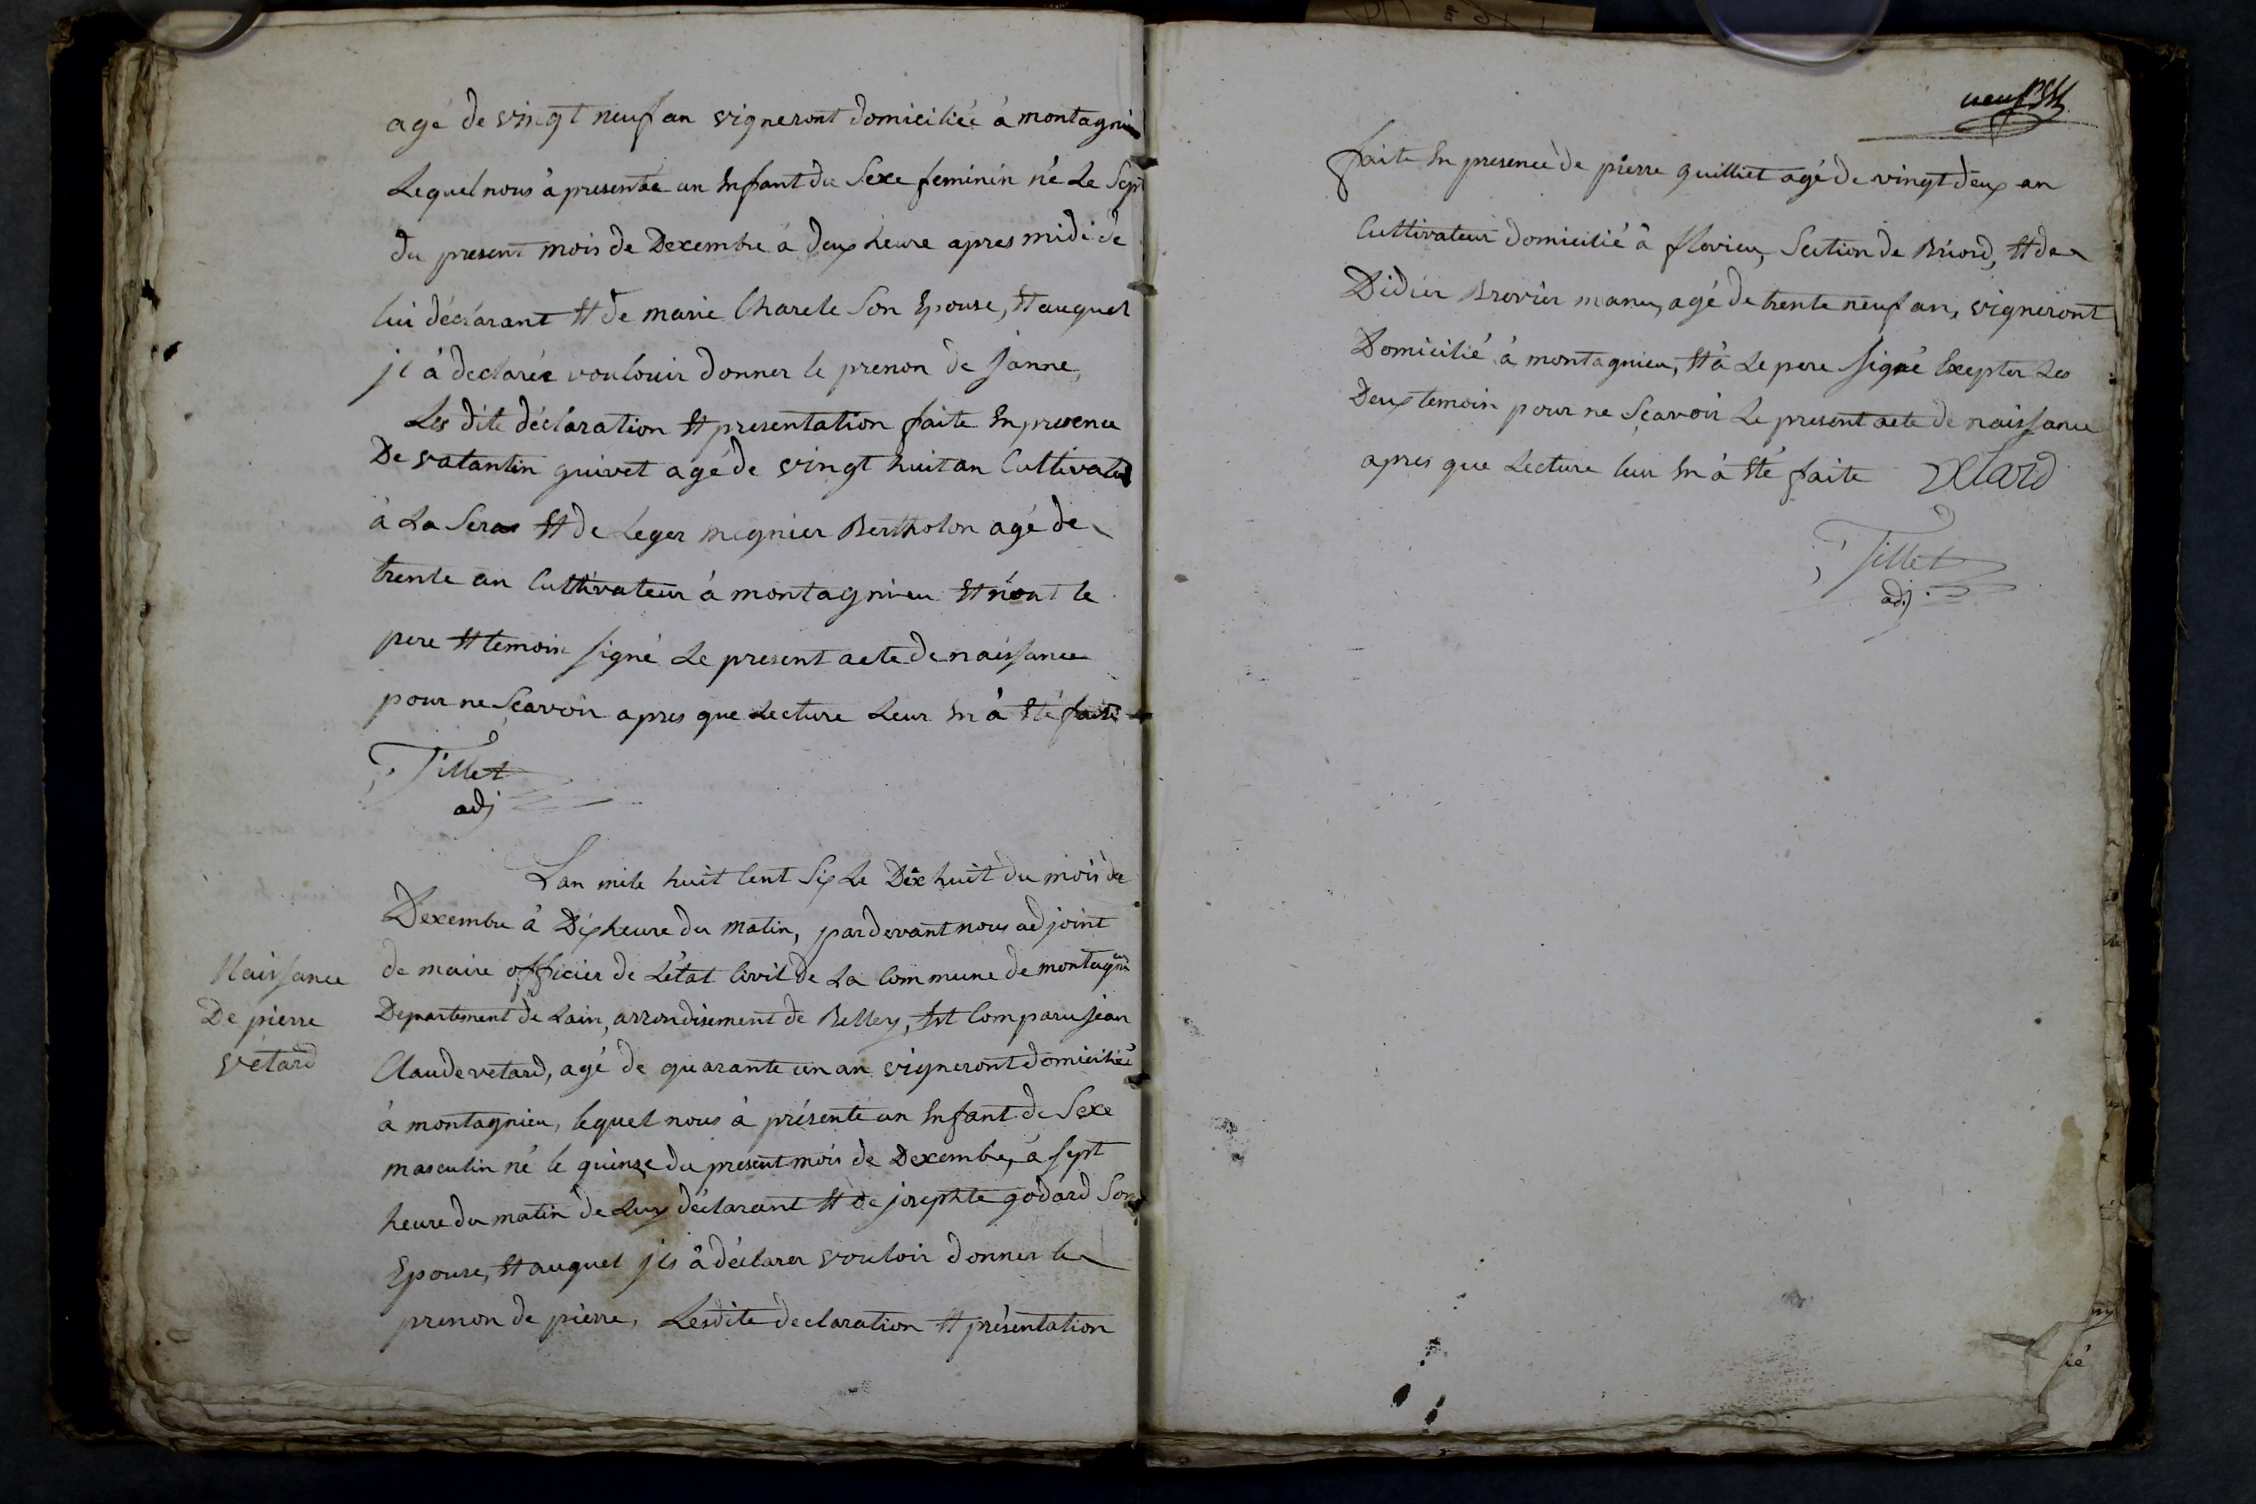 agé de vingt neuf an vigneront domiciliéé à montagni
Lequel nous à presentée un Enfant du Sexe feminin né Le Sept
du present mois de Dexembre à deux heure apres midi de
lui déclarant Et de marie Charele Son Epouse, Et auquel
jl à declarée voulouir donner le prenon de janne,
Les dite déclaration Et presentation faite En presence
De vatantin guivet agé de vingt huit an Cultivateu
à La Seras Et de Leger mignier Bertholon agé de
trente an Cultivateur à montagnieu Et n'ont le
pere Et temoin signé Le present acte de naissance
pour ne Sçavoir apres que Lecture Leur En à Eté faite
Tillet
adj
Lan mile huit Cent Six Le Dix huit du mois de
Dexembre à Dix heure du matin, pardevant nous adjoint
de maire officier de L'état Civil de La Commune de montagnieu
Departement de Lain, arrondisement de Belley, Est Comparu jean
Claude vetard, agé de quarante un an vigneront domiciliéé
à montagnieu, lequel nous à présenté un Enfant de Sexe
masculin né le quinze du présent mois de Dexembre, à sept
heure du matin de Luy déclarant Et de josephte godard Son
Epouse, Et auquel jls à déclarer vouloir donner le
prenon de pierre, Lesdite declaration Et présentation
Naissance
De pierre
vétard
neuf
faite En presence de pierre guilliet agé de vingt deux an
Cultivateur domicilié à flevieu, Section de Briord, Et de
Didier Brovier manu, agé de trente neuf an, vigneront
Domicilié à montagnieu, Et à Le pere signé Exepter Les
Deux temoin pour ne Sçavoir Le present acte de naissance
apres que Lecture leur En à Eté faite vetard
Tillet
adj.